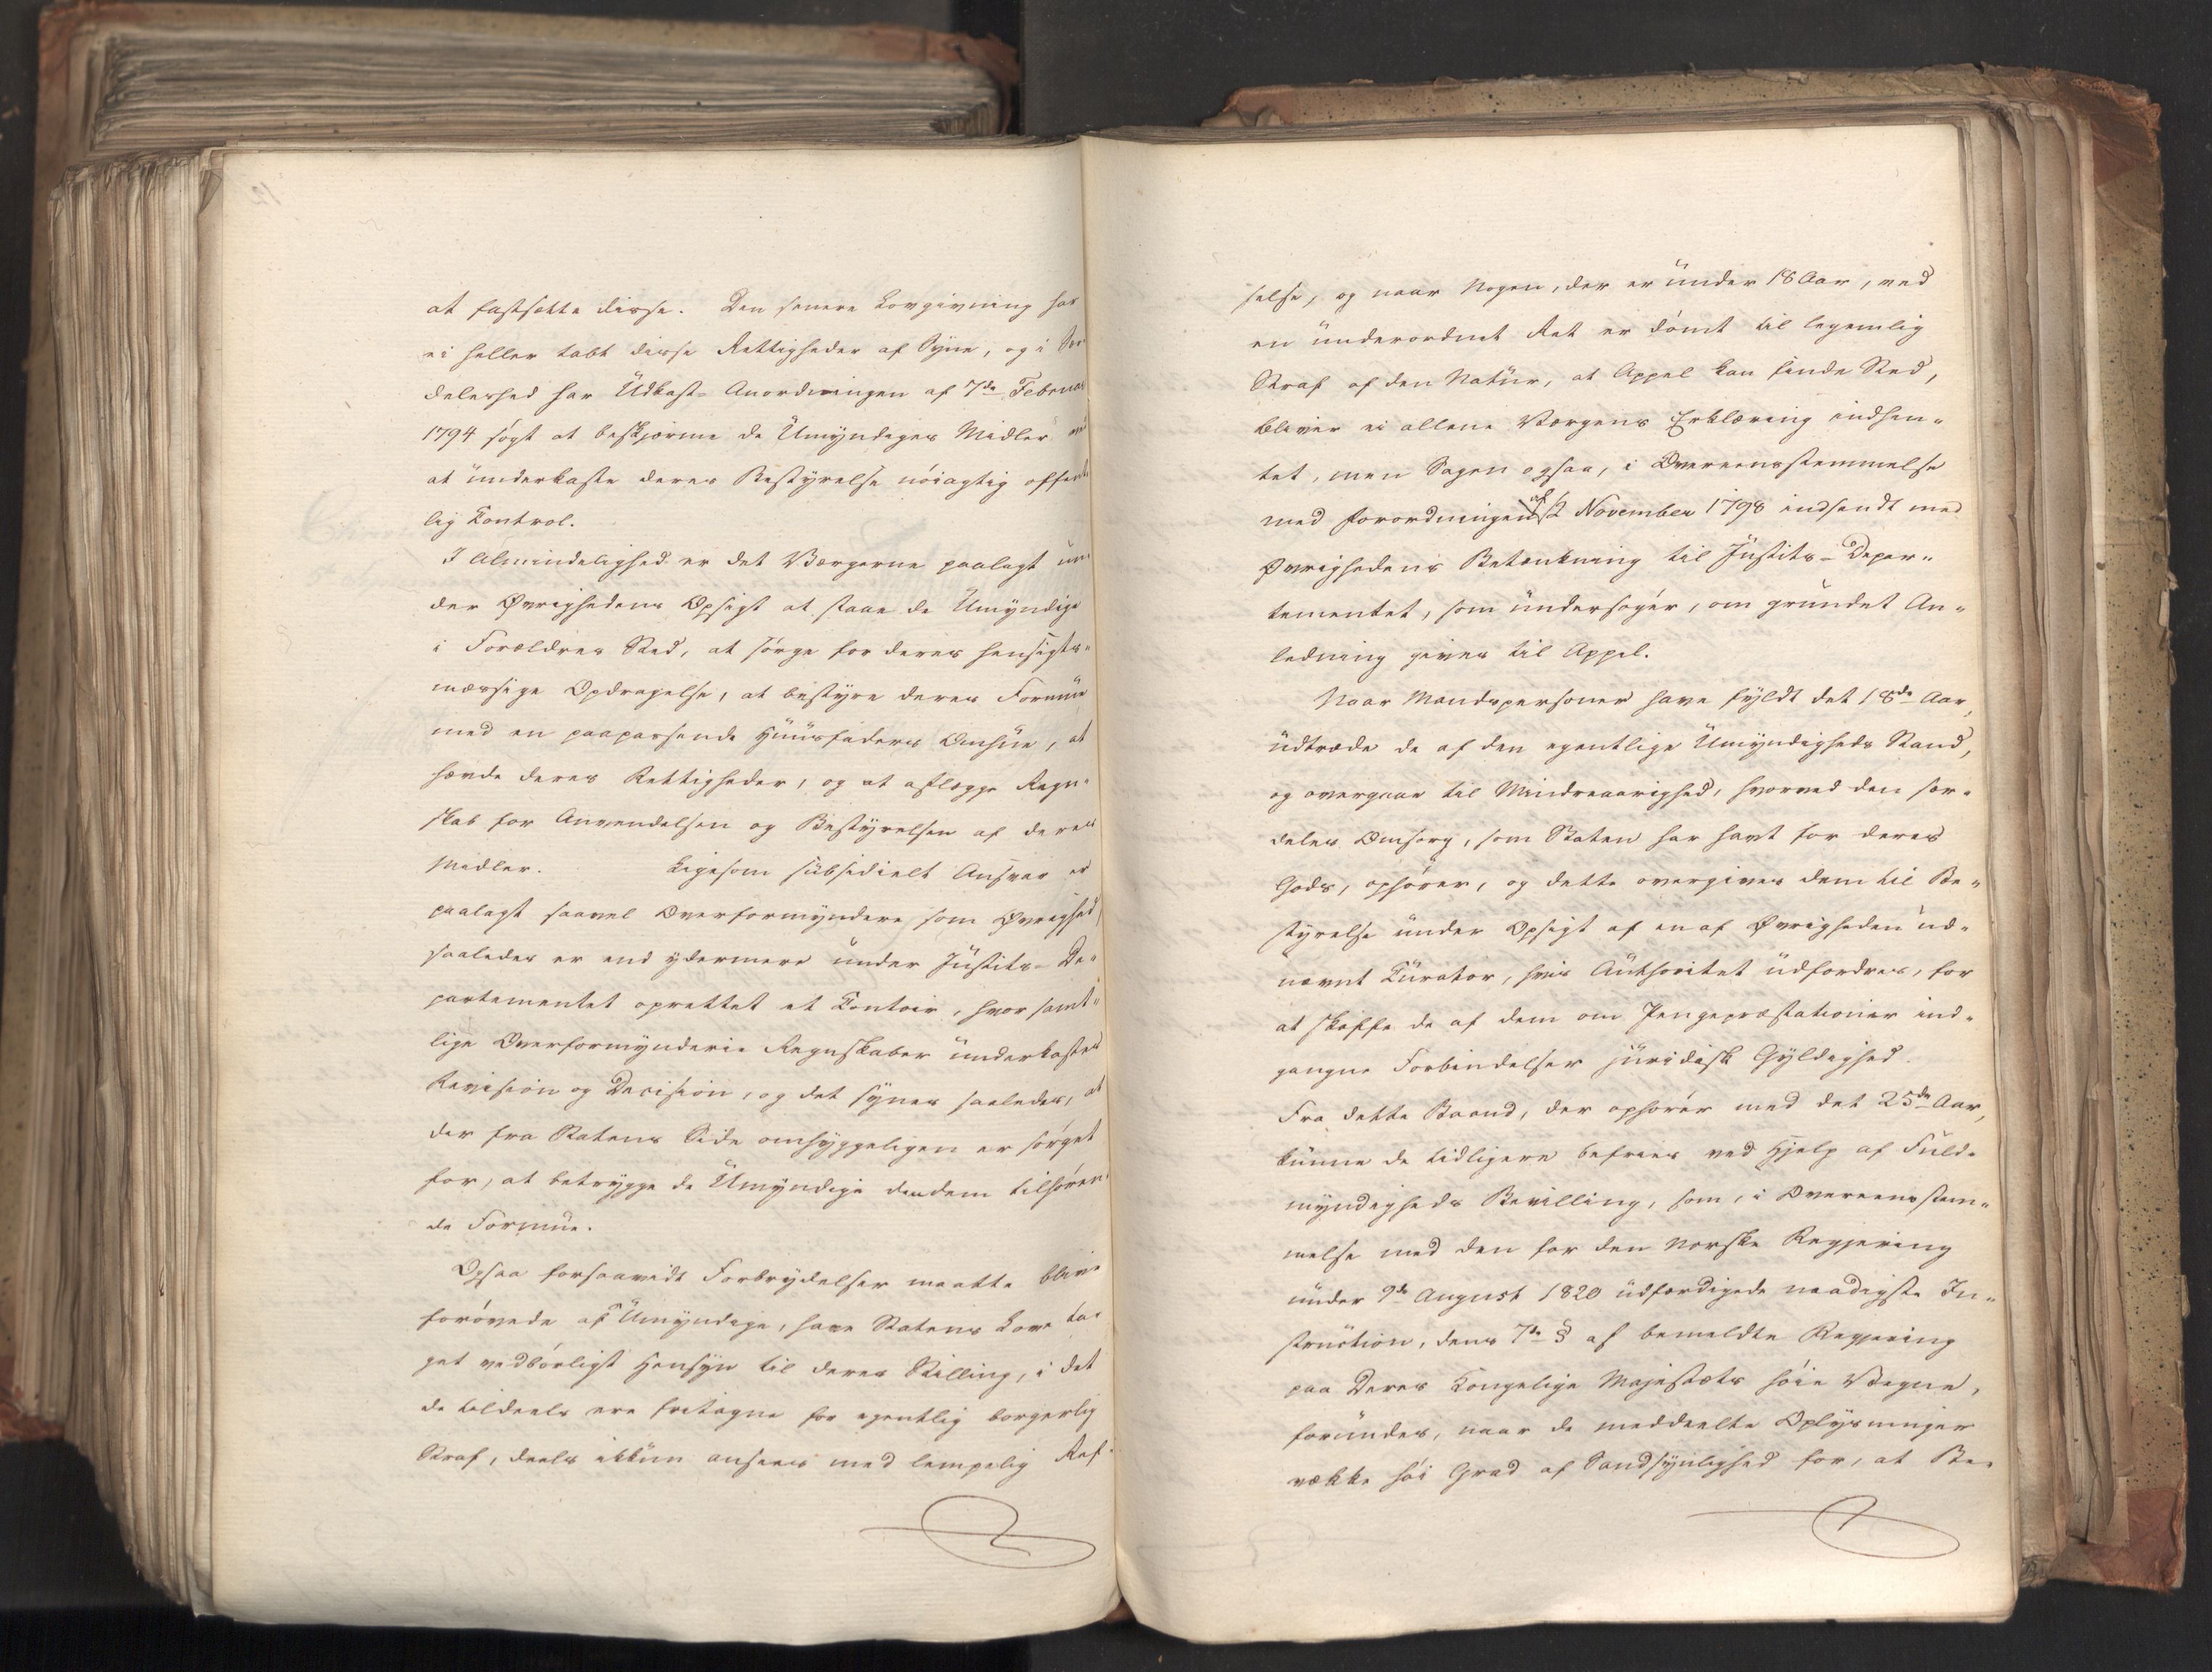 at fastsætte disse. Den senere Lovgivning har
ei heller tabt disse Rettigheder af Syne, og i Sær
deleshed har Udkast-Anordningen af 7de Februar
1794 søgt at beskjærme de Umyndiges Midler ved
at underkaste deres Bestyrelse nöiagtig offent
lig Kontrol.
I Almindelighed er det Værgerne paalagt un-
der Øvrighedens Opsigt at staae de Umyndige
i Forældres Sted, at sørge for deres hensigts-
mæssige Opdragelse, at bestyre deres Formue
med en paapassende Huusfaders Omhue, at
hævde deres Rettigheder, og at aflægge Regn-
skab for Anvendelsen og Bestyrelsen af deres
Midler. Ligesom subsidielt Ansvar er
paalagt saavel Overformyndere som Øvrighed,
saaledes er end ydermere under Justits-De-
partementet oprettet et Kontoir, hvor samt-
lige Overformynderie Regnskaber underkastes
Revision og Decision, og det synes saaledes, at
der fra Statens Side omhyggeligen er sørget
for, at betrygge de Umyndige den dem tilhören-
de Formue.
Ogsaa forsaavidt Forbrydelser maatte blive
forövede af Umyndige, have Statens Love ta-
get vedbörligt Hensyn til deres Stilling, i det
de tildeels ere fritagne for egentlig borgerlig
Straf, deels ikkun ansees med lempelig Ref-
selse, og naar Nogen, der er under 18 Aar, ved
en underordnet Ret er dömt til legemlig
Straf af den Natur, at Appel kan finde Sted,
bliver ei allene Værgens Erklæring indhen-
tet, men Sagen ogsaa, i Overeensstemmelse
med Forordningen af 2 November 1798 indsendt med
Øvrighedens Betænkning til Justits-Depar-
tementet, som undersøger, om grundet An-
ledning gives til Appel.
Naar Mandspersoner have fyldt det 18de Aar,
udtræde de af den egentlige Umyndigheds Stand,
og overgaae til Mindreaarighed, hvorved den sær-
deles Omsorg, som Staten har havt for deres
Gods, ophører, og dette overgives dem til Be-
styrelse under Opsigt af en af Øvrigheden ud-
nævnt Kurator, hvis Authoritet udfordres, for
at skaffe de af dem om Pengepræstationer ind-
gangne Forbindelser juridisk Gyldighed.
Fra dette Baand, der ophorer med det 25de Aar,
kunne de tidligere befries ved Hjelp af Fuld-
myndigheds Bevilling, som, i Overeensstem-
melse med den for den norske Regjering
under 9de August 1820 udfærdigede naadigste In-
struction, dens 7de § af bemeldte Regjering
paa Deres Kongelige Majestæts höie Vegne,
forundes, naar de meddeelte Oplysninger
vække höi Grad af Sandsynlighed for, at Be-